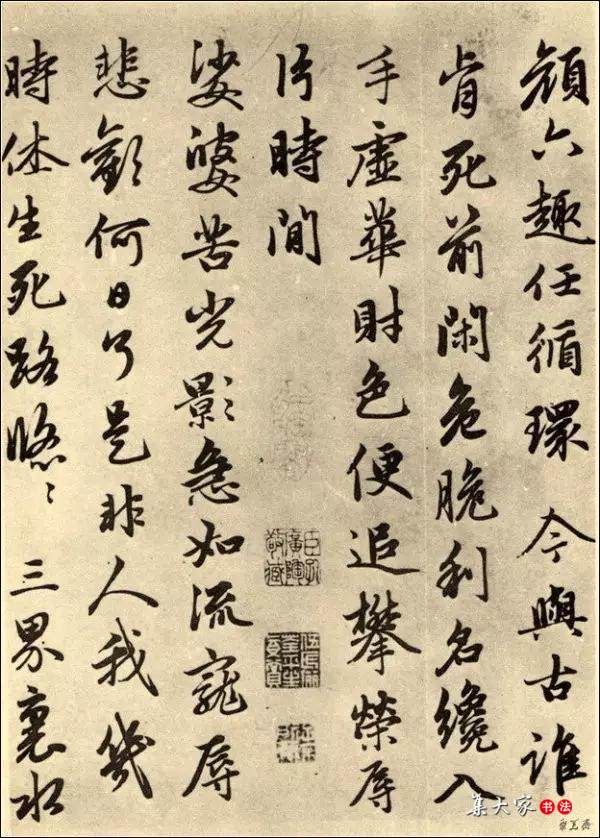 顔六趣任循環 今與古誰
肯死前閑危脆利名纔入
手虛華財色便追攀榮辱
片時間
娑婆苦光影急如流寵辱
悲歡何日了是非人我幾
時休生死路悠〻 三界裏水
臣孔廣陶敬藏
集大家书法